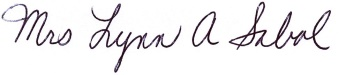 Mrs Lynn A Sabol